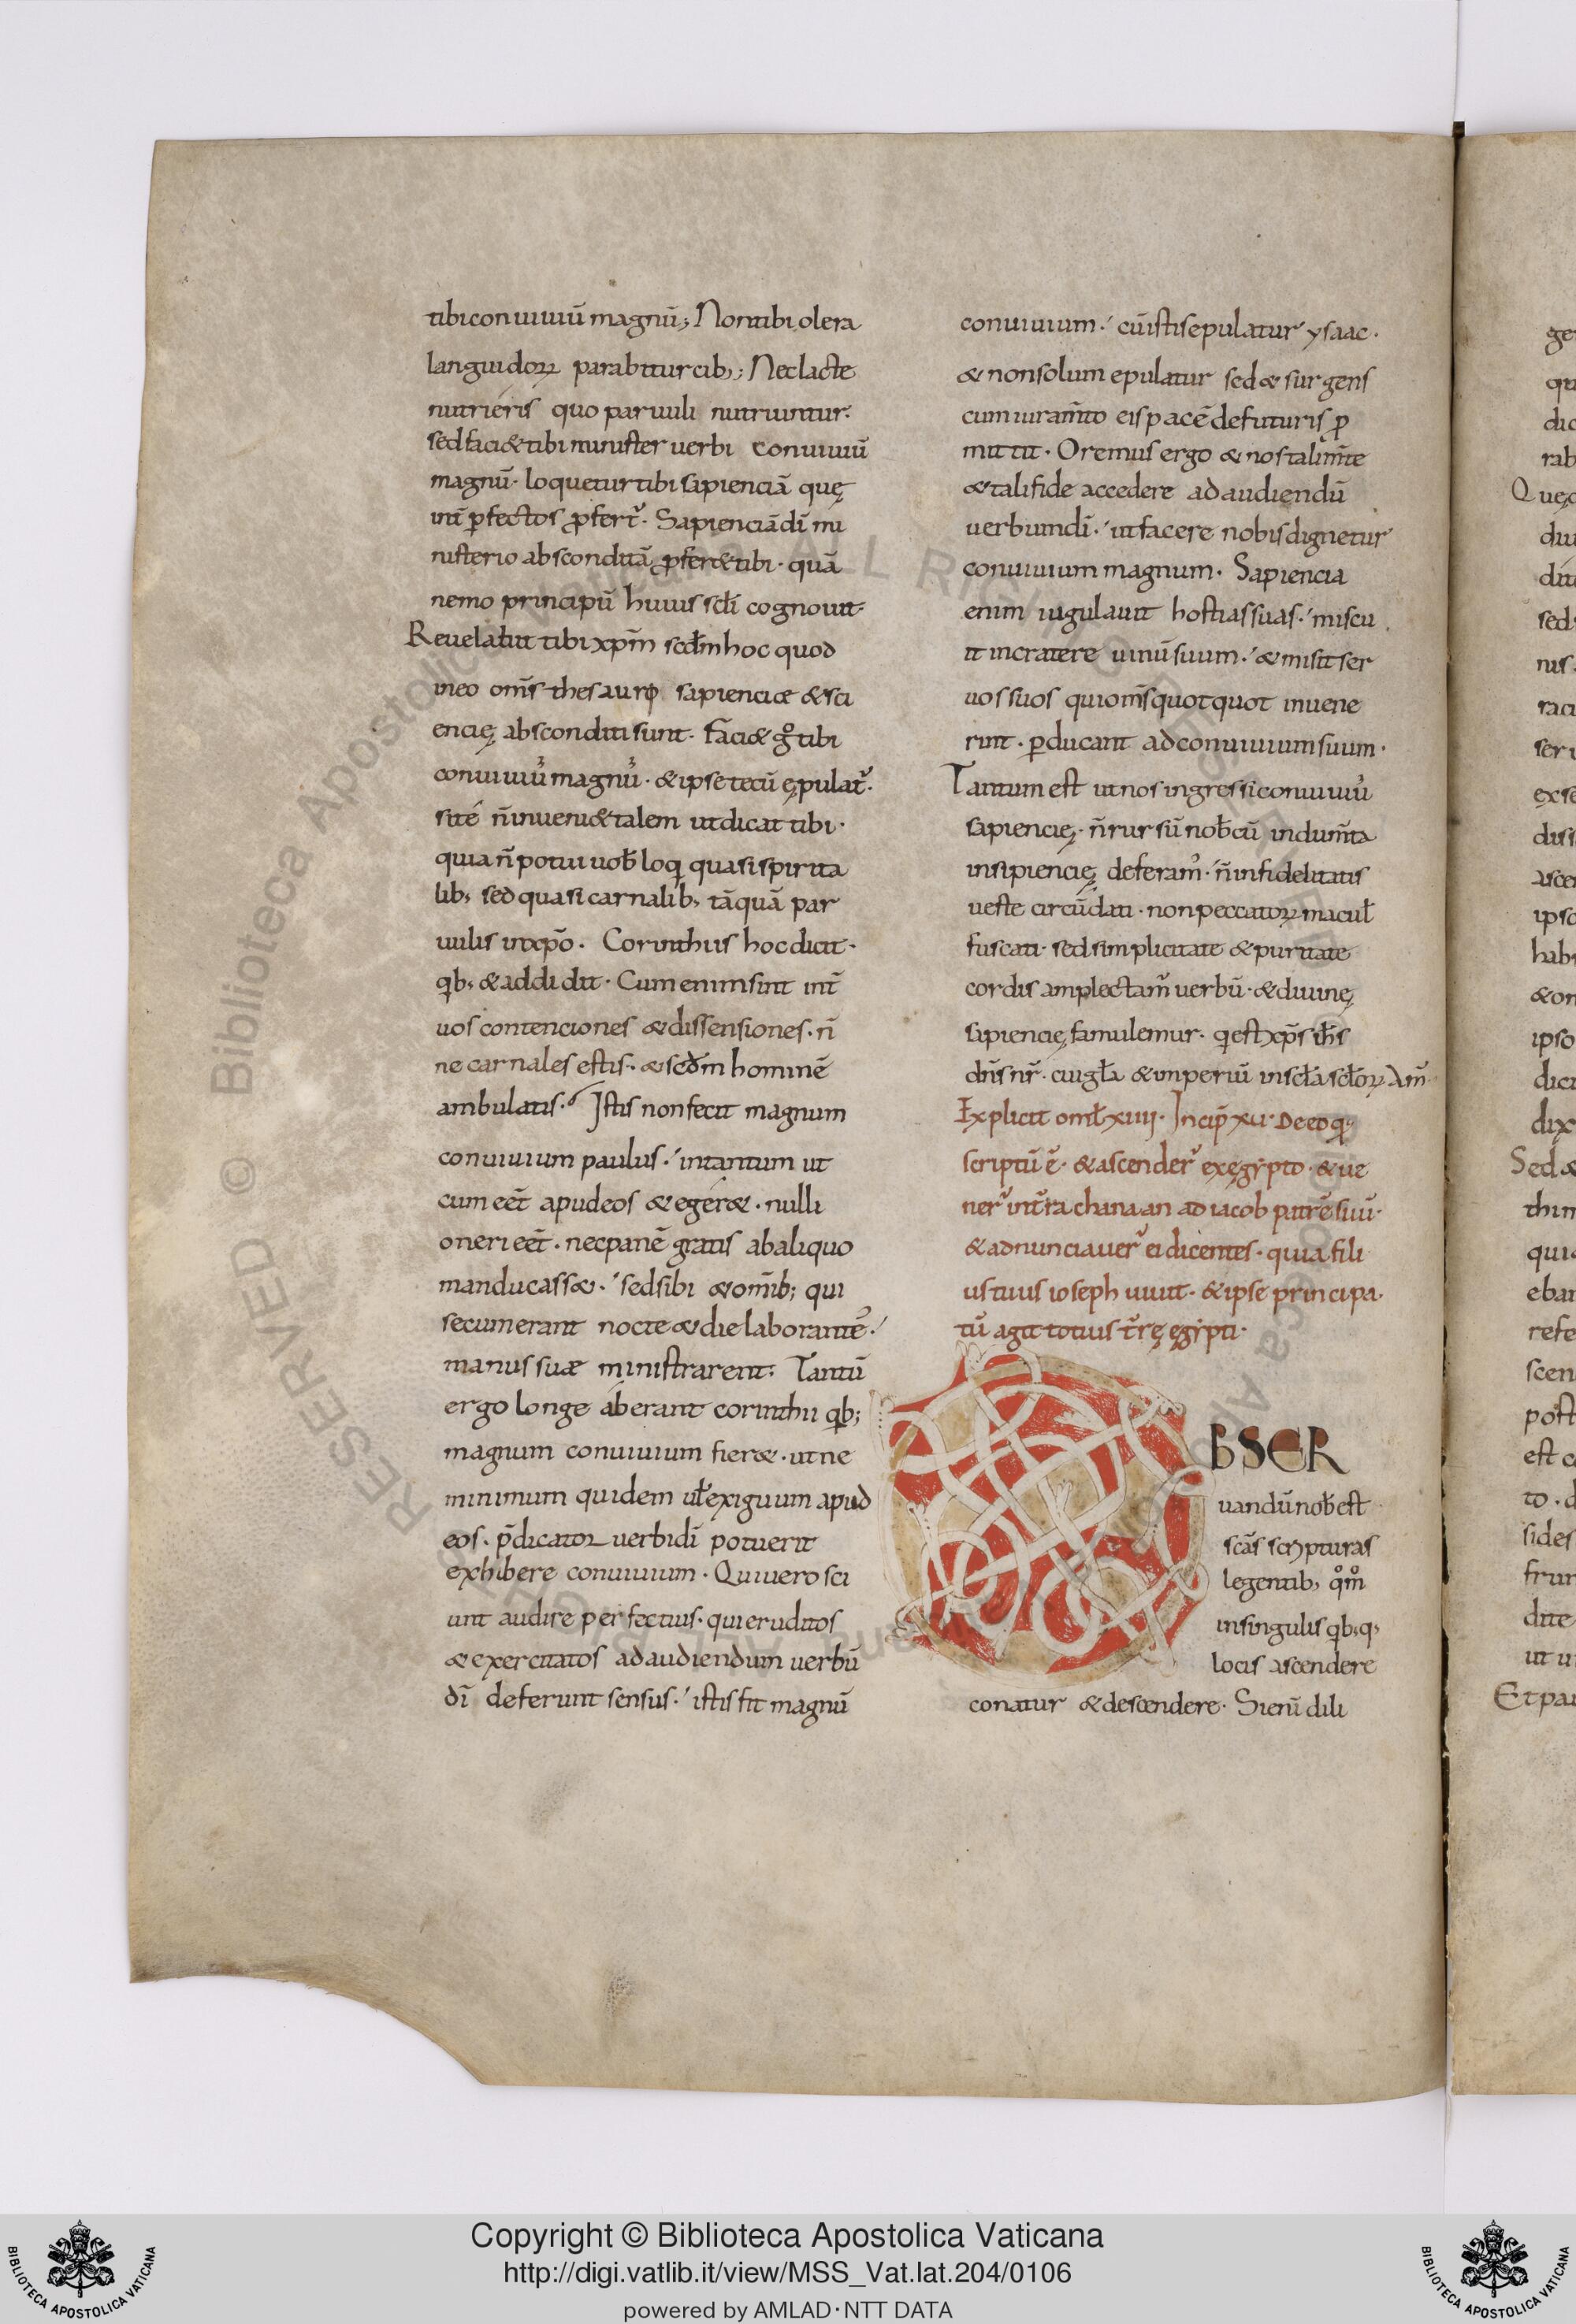 tibi conuiuiū magnū; Non tibi olera
languidoꝝ parabitur cib;; Nec lacte
nutriéris quo paruuli nutriuntur.
sed faci& tibi minister uerbi conuiuiū
magnū. loquetur tibi sapienciā quę
int̄ ꝑfectos ꝓfert᷒. Sapienciā dī mi
nisterio absconditā ꝓfer& tibi. quā
nemo principū huius sc̄li cognouit.
Reuelabit tibi xp̄m scd̄m hoc quod
in eo om̄s thesauri sapienciæ & sci
encię absconditi sunt. faci& gͦ tibi
conuiuiū magnū. & ipse tecū ępulat᷒.
si té n̄ inueni& talem ut dicat tibi.
quia n̄ potui uob̄ loqi quasi spirita
lib; sed quasi carnalib; tāquā par
uulis in xp̄o. Corinthiis hoc dicit.
qib; & addidit. Cum enim sint int̄
uos contenciones & dissensiones. n̄
ne carnales estis. & scd̄m hominē
ambulatis. Istis non fecit magnum
conuiuium paulus. in tantum ut
cum eēt apud eos & eger&. nulli
oneri eēt. nec panē gratis ab aliquo
manducass&. sed sibi & om̄ib; qui
secum erant nocte & die laborante᷒.
manus suæ ministrarent. Tantū
ergo longe áberant corinthii qib;
magnum conuiuium fier&. ut ne
minimum quidem ul̄ exiguum apud
eos. p̄dicator uerbi dī potuerit
exhibere conuiuium. Qui uero sci
unt audire perfectius. qui eruditos
& exercitatos ad audiendum uerbū
dī deferunt sensus. istis fit magnū
conuiuium. cū istis epulatur ysaac.
& non solum epulatur sed & surgens
cum iuram̄to eis pacē de futuris ꝓ
mittit. Oremus ergo & nos tali m̄te
& tali fide accedere ad audiendū
uerbum dī. ut facere nobis dignetur
conuiuium magnum. Sapiencia
enim iugulauit hostias suas. miscu
it in cratere uinū suum. & misit ser
uos suos qui om̄s quotquot inuene
rint. ꝑducant ad conuiuium suum.
Tantum est ut nos ingressi conuiuiū
sapiencię. n̄ rursū nob̄cū indum̄ta
insipiencię deferam᷒. n̄ infidelitatis
ueste circūdati. non peccatoꝝ macul̄
fuscati. sed simplicitate & puritate
cordis amplectam᷒ uerbū. & diuinę
sapiencię famulemur. qi est xp̄s ih̄s
dn̄s nr̄. cui gl̄a & imperiū in scl̄a scl̄oꝝ Am̄.
Explicit oml̄ xiiii. Incip̄ xv. De eo qd
scriptū ē. & ascender᷒ ex ęgypto. & ue
ner᷒ in t̄ra chanaan ad iacob patrē suū.
& adnunciauer᷒ ei dicentes. quia fili
us tuus ioseph uiuit. & ipse principa
tū agit totius t̄rę ęgypti.
OBSER
uandū nob̄ est
sc̄as scripturas
legentib; qͦmͦ
in singulis qib;q;
locis ascendere
conatur & descendere. Si enī dili
Copyright © Biblioteca Apostolica Vaticana
http://digi.vatlib.it/view/MSS_Vat.lat.204/0106
powered by AMLAD·NTT DATA
BIBLIOTECA APOSTOLICA VATICANA
BIBLIOTECA APOSTOLICA VATICANA